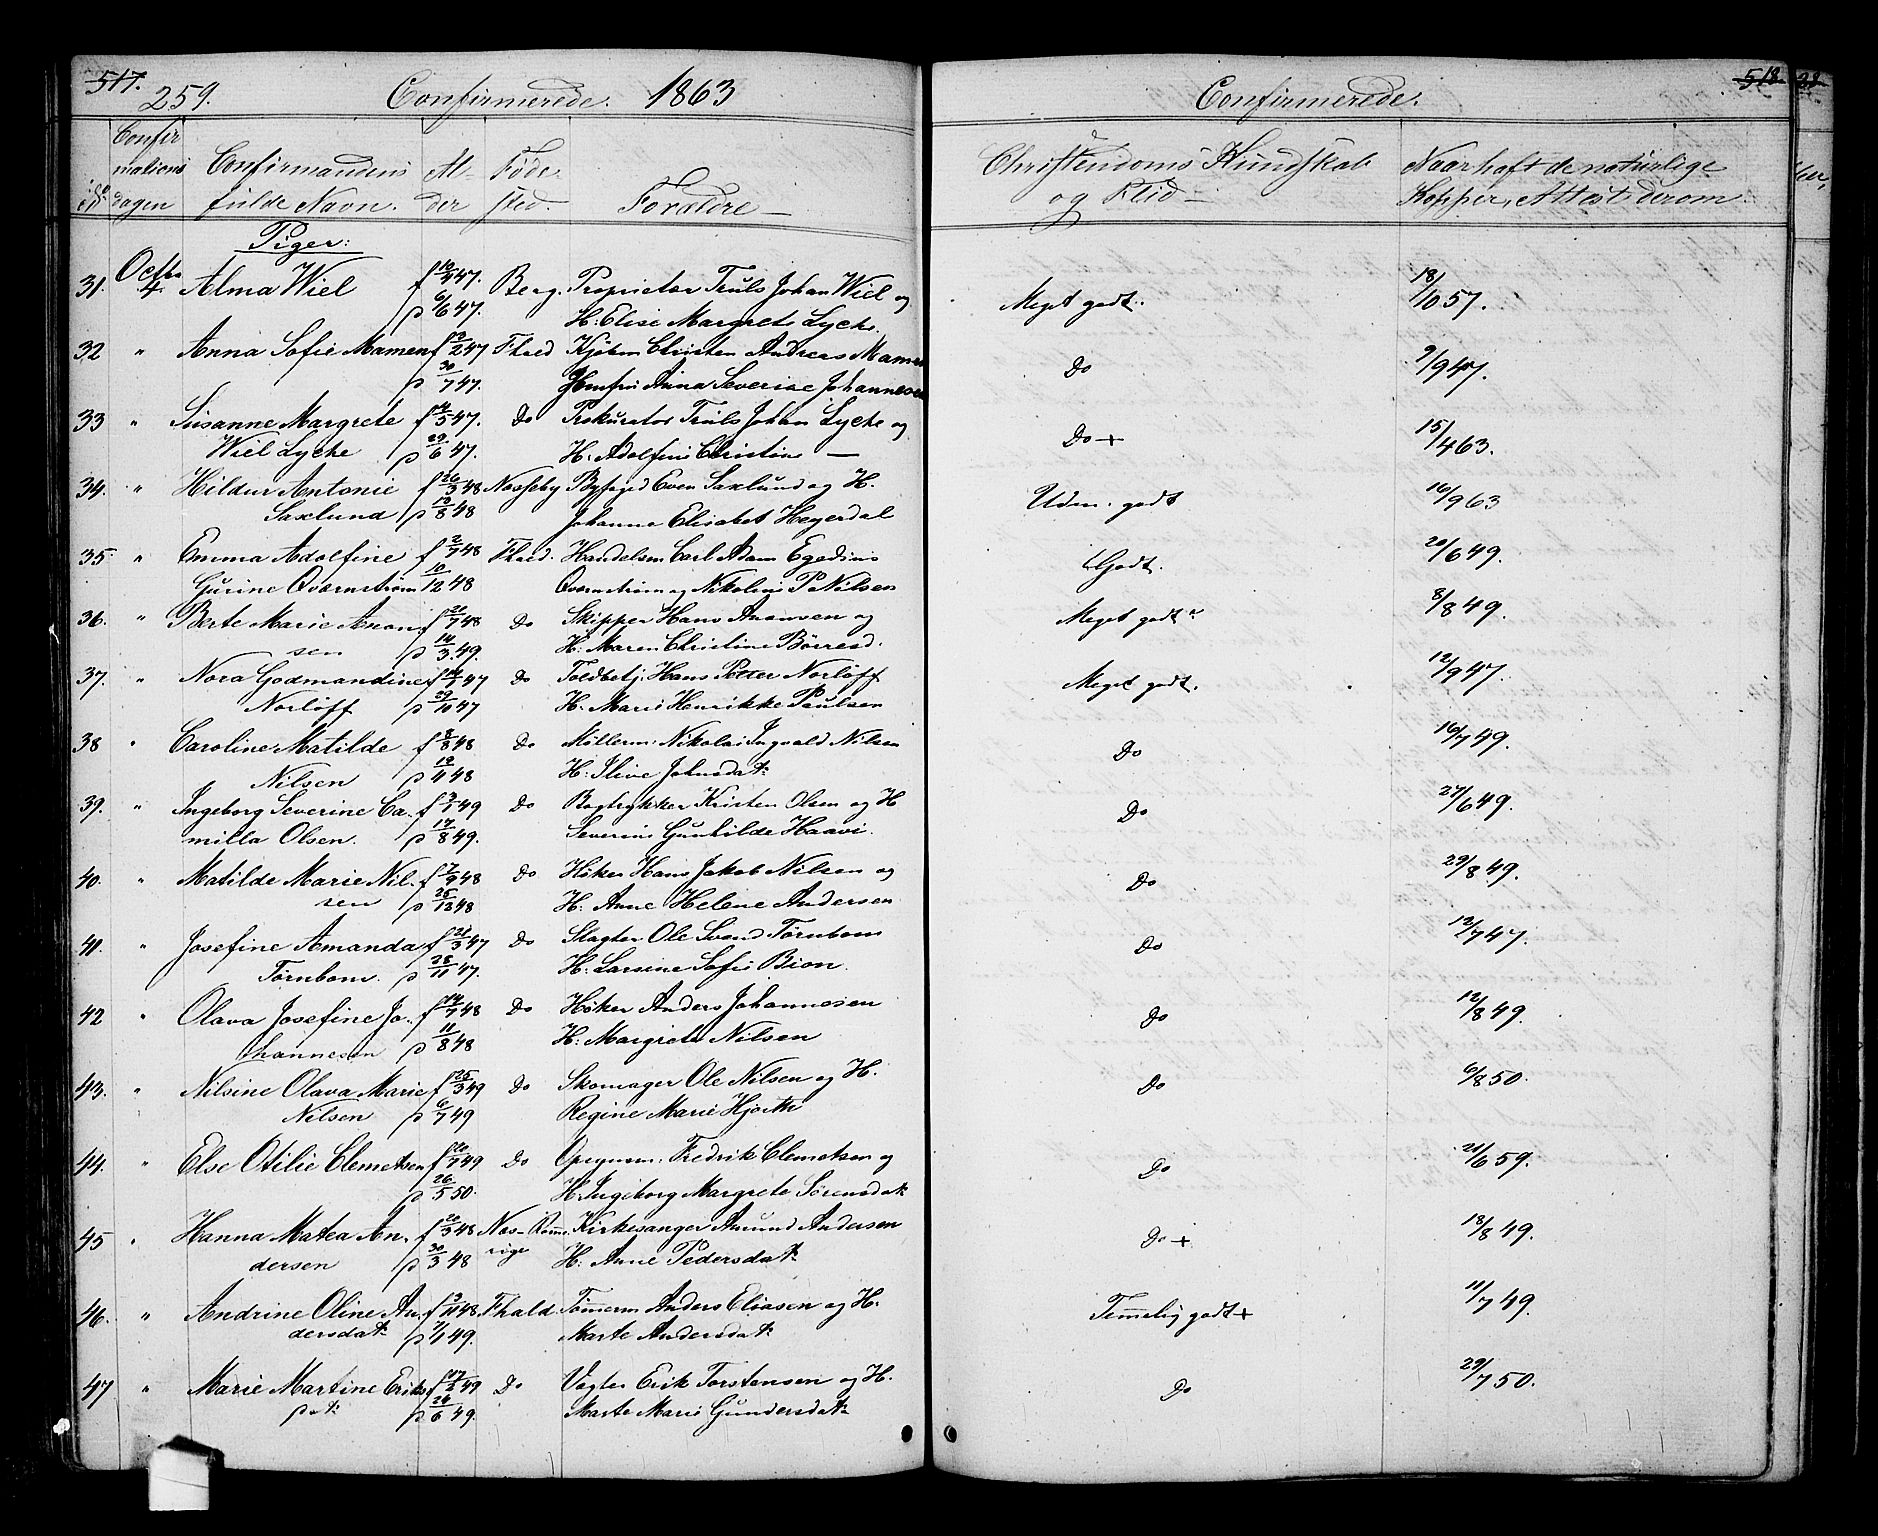 517.
259.
Confirmerede. 1863
Confirmations dagen
Confirmandens fulde Navn.
Alder
Fødested.
Forældre
Piger:
31. Octbr 4. Alma Wiel f 47. Berg. Proprietær Truls Johan Wiel og
p 6/6 47. H: Elise Margrete Lyche.
32 " Anna Sofie Mamen f 47 Fhald Kjøbm Christen Andreas Mamen
p 30/7 47. Jomfru Anna Severine Johannesen
33 " Susanne Margrete f /5 47. Do Prokurator Truls Johan Lyche og
Wiel Lyche p 29/6 47. H: Adolfine Christine —
34. " Hildur Antonie f 26/3 48 Næsseby Byfoged Even Saxlund og H.
Saxlund p 19/8 48 Johanne Elisabet Heyerdal
35 " Emma Adolfine f 2/7 48 Fhald. Handelsm Carl Adam Egedius
Gurine Qvarnstrøm 10/12 48 Qvarnstrøm og Nikoline P Nilsen
36. " Berte Marie Anon f 21/7 48 Do Skipper Hans Anonsen og
sen p 14/3. 49. H: Maren Christine Børresd.
37. " Nora Godmandine f 47 Do Toldbetj. Hans Petter Norløff
Norløff p 29/10 47 H. Marie Henrikke Paulsen
38 " Caroline Matilde f 8/8 48 Do Møllerm: Nikolai Ingvald Nilsen
Nilsen p 19/11 48 H: Olive Johnsdat.
39. " Ingeborg Severine Ca- f /1 49 Do Bogtrykker Kristen Olsen og H
milla Olsen. p 17/8 49. Severine Gunhilde Haavi.
40. " Matilde Marie Nil- f 7/9 48 Do Høker Hans Jakob Nilsen og
sen p 25/12 48 H. Anne Helene Andersen
41. " Josefine Amanda f 21/3 47 Do Slagter Ole Svend Tørnbom
Tørnbom. p 28/11 47. H. Larsine Sofie Bion.
42 " Olava Josefine Jo- f 14/7 48 Do Høker Anders Johannesen
hannesen p 11/8 48 H: Margrete Nilsen
43. " Nilsine Olava Marie f 25/3 49 Do Skomager Ole Nilsen og H.
Nilsen p 6/7 49 Regine Marie Hjorth
44. " Else Otilie Clemetsen f 20/7 49 Do Opsynsm: Fredrik Clemetsen og
p 26/5 50. H. Ingeborg Margrete Sørensdat.
45 " Hanna Matea An- f 20/3 48 Kirkesanger Amund Andersen
dersen p 30/3 48 H. Anne Pedersdat.
46. " Andrine Oline An- f 9/11 48 Fhald. Tømmerm Anders Eliasen og H.
dersdat. p 7/1 49. Marte Andersdat.
47 " Marie Martine Eriks f /2 49 Do Vægter Erik Torstensen og H.
dat. p 24/6 49. Marte Marie Gundersdat.
518.
Confirmerede.
Christendoms Kundskab og Flid —
Naar haft de naturlige Kopper, Attest derom
Meget godt. 18/10 57.
Do 9/9 47.
Do + 15/4 63.
Udm. godt 16/9 63
Godt. 20/6 49.
Meget godt 8/8 49.
Meget godt. 12/9 47.
Do 16/7 49.
Do 27/6 49.
Do 29/8 49.
Do 12/7 47.
Do 12/8 49.
Do 6/8 50.
Do 21/6 59.
Do + 18/8 49.
Temmelig godt + 11/7 49.
Do 29/7 50.